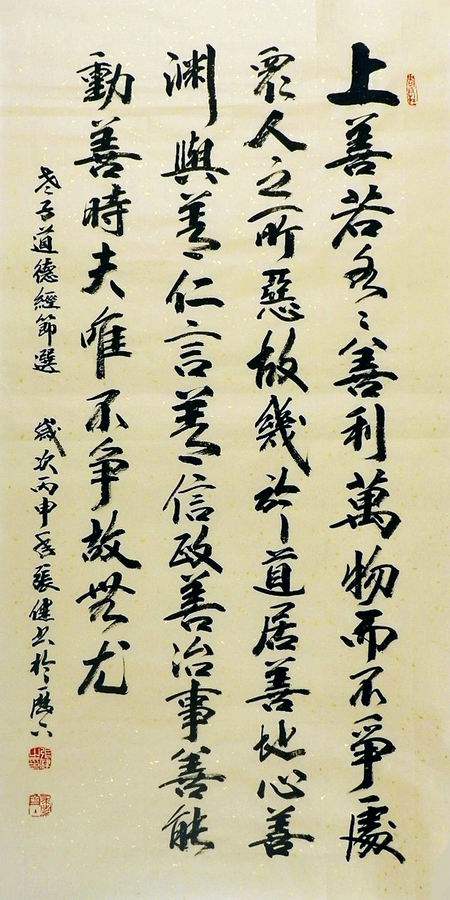 上善若水〻善利萬物而不爭處
眾人之所惡故幾於道居善地心善
淵與善仁言善信政善治事善能
動善時夫唯不爭故無尤
老子道德經節選 歲次丙申春張健書於歷下